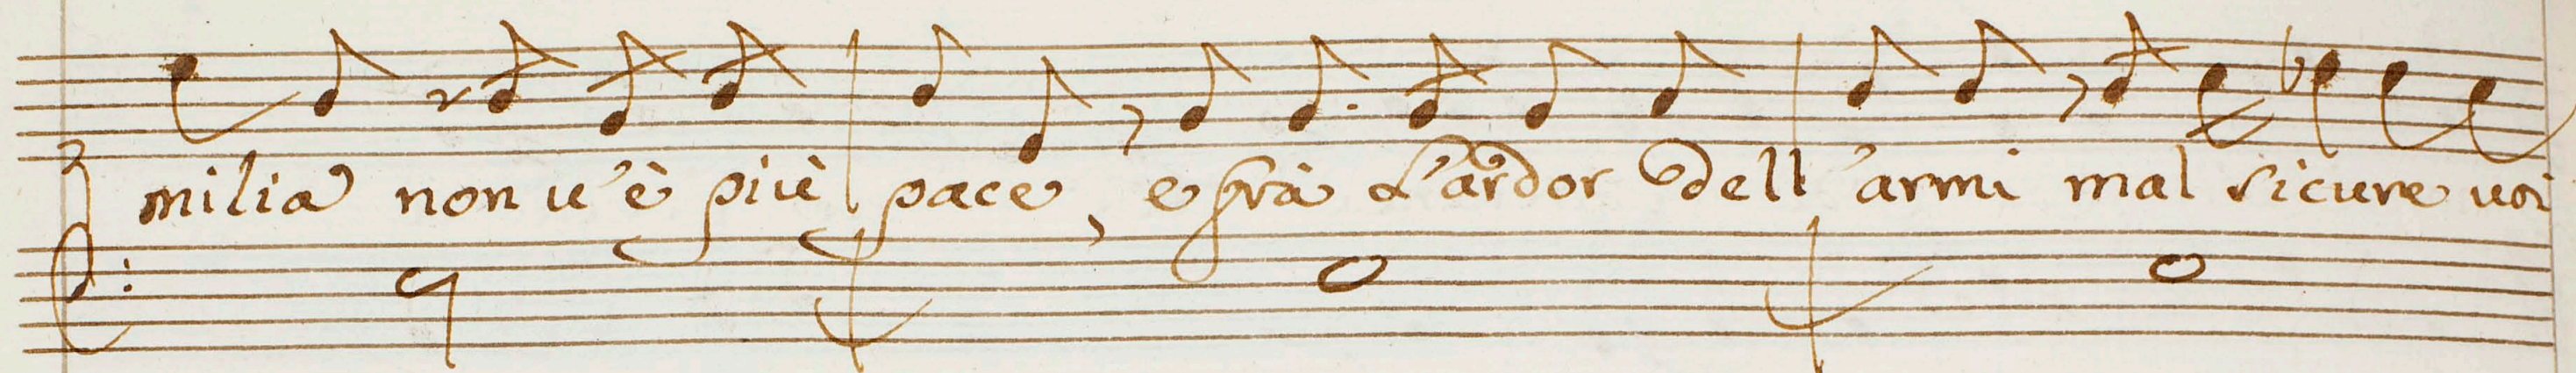 milia non u'è più pace, e frà l'ardor dell'armi mal sicure uoi